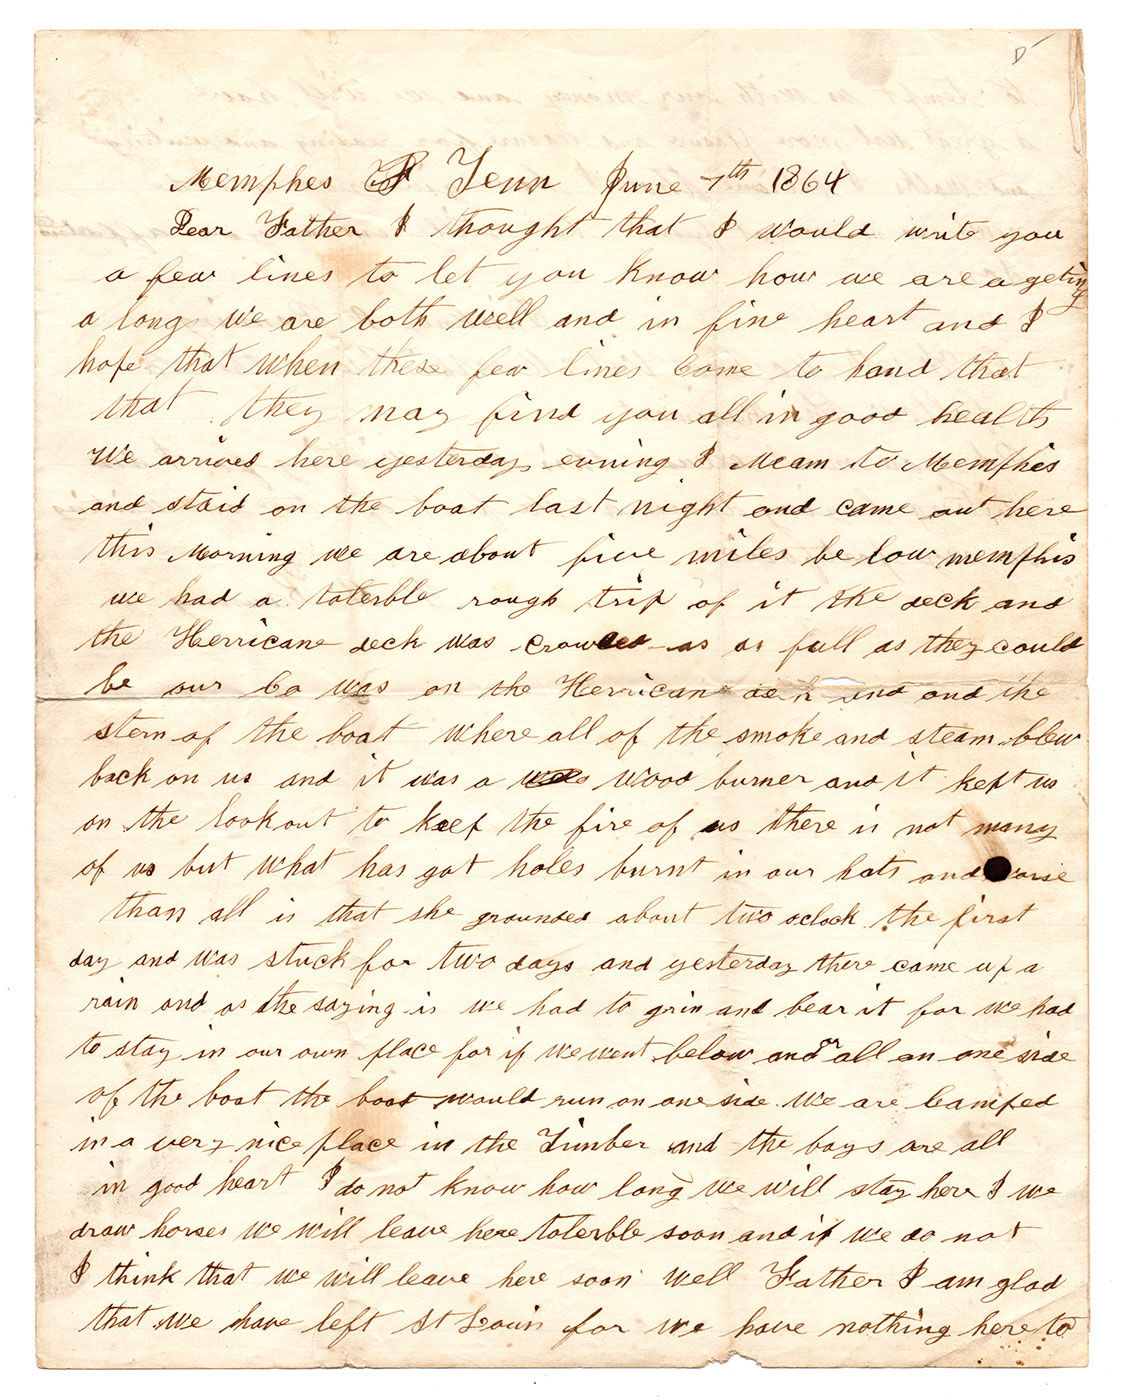 Memphes Tenn June 7th 1864
Dear Father I thought that I would write you
a few lines to let you know how we are a geting
a long We are both well and in fine heart and I
hope that when these few lines Come to hand that
that they may find you all in good health
We arrived here yesterday evning I Meam to Memphis
and staid on the boat last night and came out here
this Morning we are about five miles be low memphis
we had a tolerble rough trip of it the deck and
the Herricane deck was crowded as as full as they could
be our Co was on the Herricane deck and and the
stern of the boat Where all of the smoke and steam blew
back on us and it was a wood burner and it kept us
on the lookout to keef the fire of us there is not many
of us but what has got holes burnt in our hats and worse
than all is that she grounded about two oclock the first
day and was stuck for two days and yesterday there came up a
rain and as the saying is we had to grin and bear it for we had
to stay in our own place for if we went below and or all on one side
of the boat the boat would run on one side We are Camped
in a very nice place in the Timber and the boys are all
in good heart I do not know how long we will stay here I we
draw horses we will leave here tolerble soon and if we do not
I think that we will leave here soon well Father I am glad
that we have left St Louis for we have nothing here to